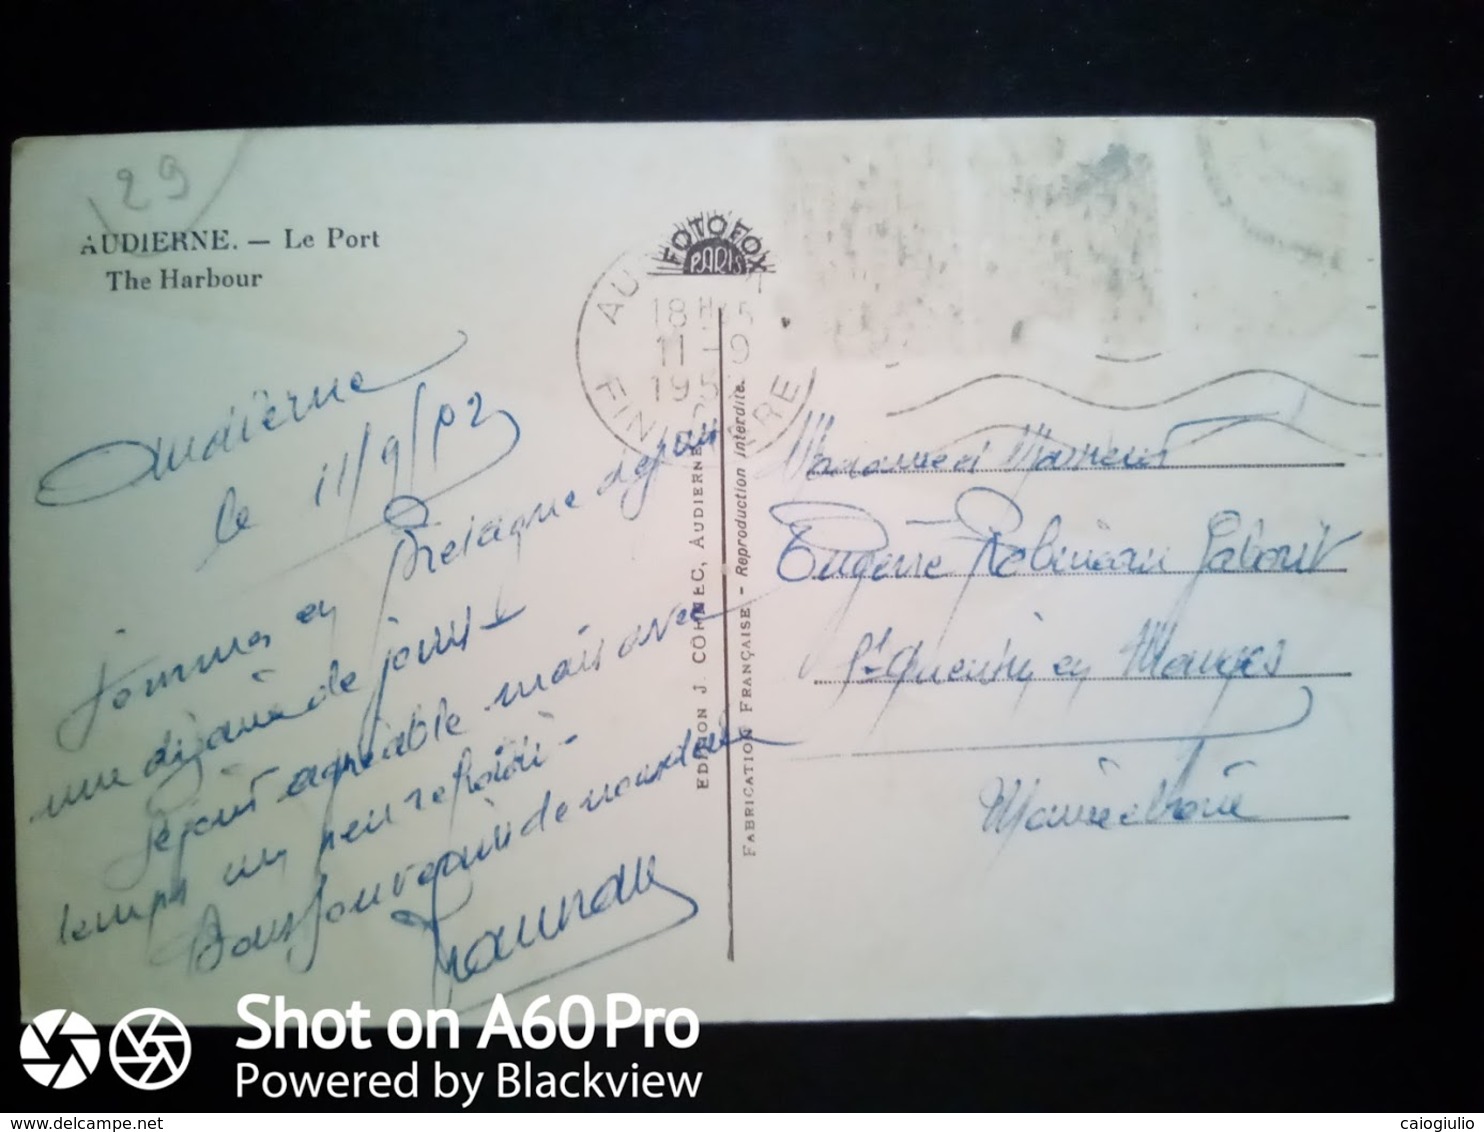 29
AUDIERNE. — Le Port
The Harbour
FOTOFOX
PARIS
18 H 45
11 - 9
195
Audierne
le 11/9/52
sommes en Bretagne depuis
une dizaine de jours
séjour agréable mais avec
temps un peu refroidi -
Bons souvenirs de nous deux
EDITION J. CORNEC, AUDIERNE
FABRICATION FRANÇAISE - Reproduction interdite.
Madame et Monsieur
Eugène Robineau Gaborit
St Quentin en Mauges
Maine et Loire
Shot on A60 Pro
Powered by Blackview
delcampe.net
caiogiulio